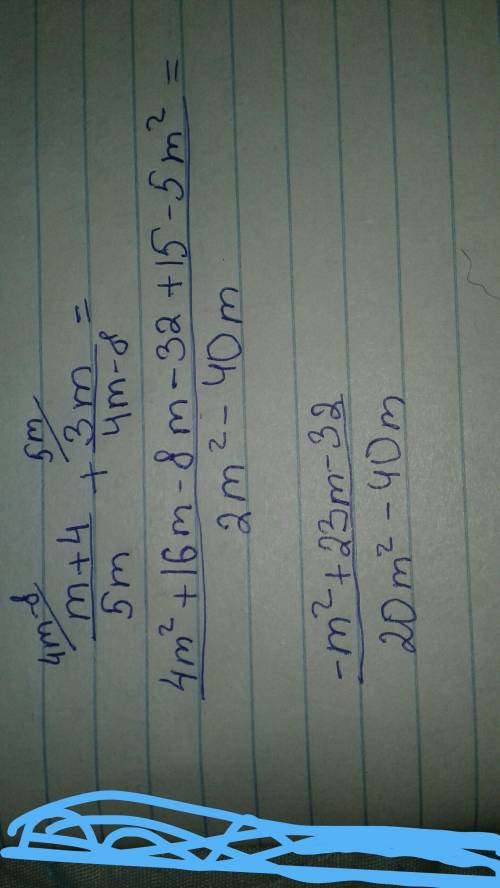 4m-8 5m
m+4 + 3m =
5m 4m-8
4m² + 16m - 8m - 32 + 15 - 5m² =
2m² - 40m
-m² + 23m - 32
20m² - 40m